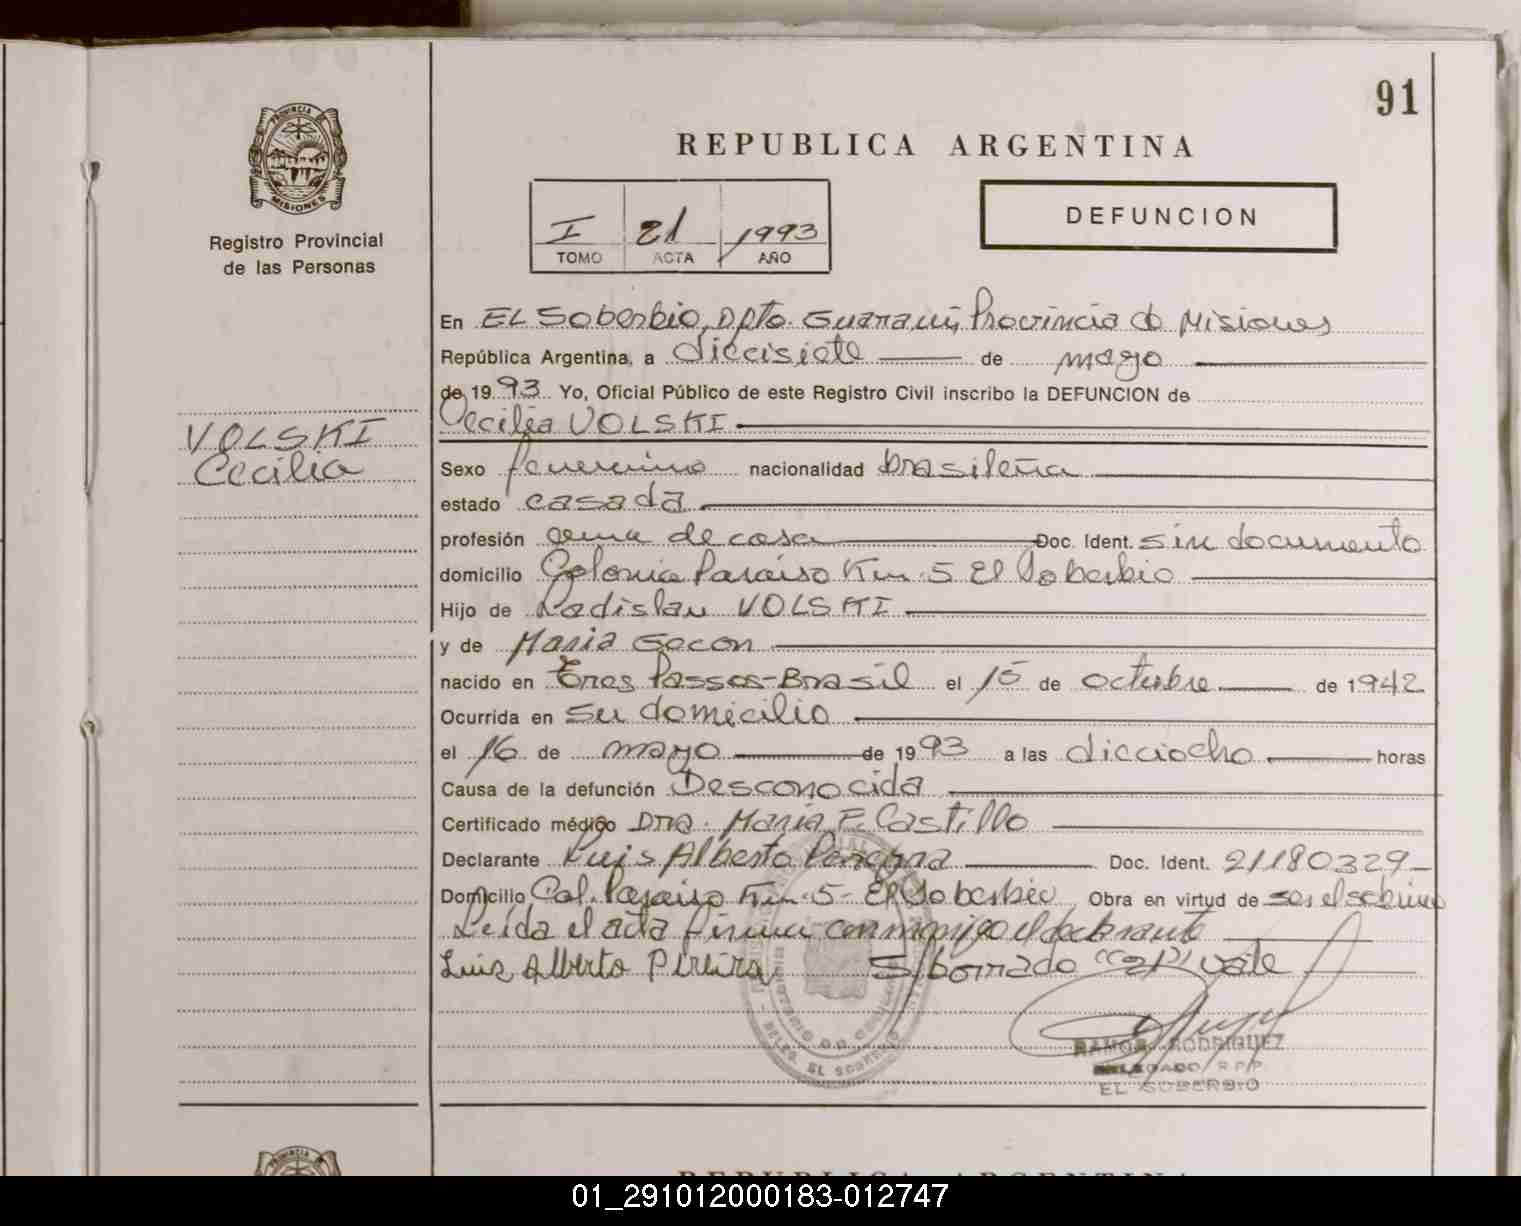 91
PROVINCIA DE
MISIONES
Registro Provincial
de las Personas
REPUBLICA ARGENTINA
I 21 1993
TOMO ACTA AÑO
DEFUNCION
VOLSKI
Cecilia
En EL Soberbio, Dpto. Guaraní, Provincia de Misiones
República Argentina, a diecisiete de mayo
de 1993 Yo, Oficial Público de este Registro Civil inscribo la DEFUNCION de
Cecilia VOLSKI
Sexo femenino nacionalidad brasileña
estado casada
profesión ama de casa Doc. Ident. sin documento
domicilio Colonia Paraiso Km. 5 El Soberbio
Hijo de Ladislau VOLSKI
y de Maria Gocon
nacido en Tres Passos-Brasil el 15 de octubre de 1942
Ocurrida en su domicilio
el 16 de mayo de 1993 a las dieciocho horas
Causa de la defunción Desconocida
Certificado médico Dra. Maria F. Castillo
Declarante Luis Alberto Pereyra Doc. Ident. 21180329
Domicilio Col. Paraiso Km. 5 - El Soberbio Obra en virtud de ser el sobrino
Leída el acta firma conmigo el declarante
Luis Alberto Pereira S/borrado "21" vale
RAMON RODRIGUEZ
DELEGADO R.P.P.
EL SOBERBIO
DELEG. EL SOBERBIO
REPUBLICA ARGENTINA
01_291012000183-012747